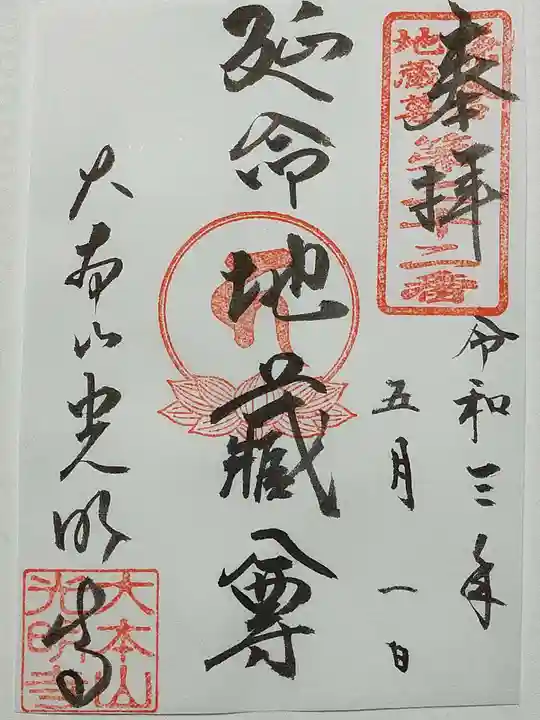 奉拝
地蔵尊
第二十二番
令和三年
五月一日
延命地蔵尊
大本山光明寺
大本山
光明寺